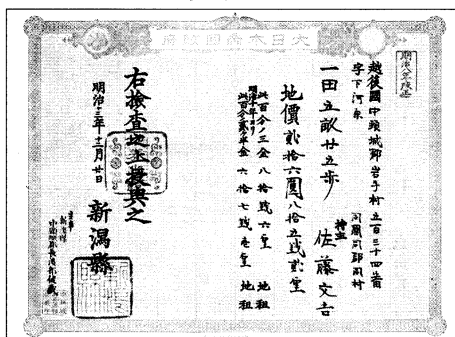 大日本帝國政府
明治八年改正
越後國中頸城郡岩手村五百三十四番
字下河原
同國同郡同村
一田五畝廿五歩
持主 佐藤文吉
地價貳拾六圓八拾五錢貳厘
此百分ノ三金八拾錢六厘 地租
明治十年ヨリ
此百分貳ケ半金六拾七錢壱厘 地租
右検査之上授與之
明治十三年十二月廿日
新潟縣